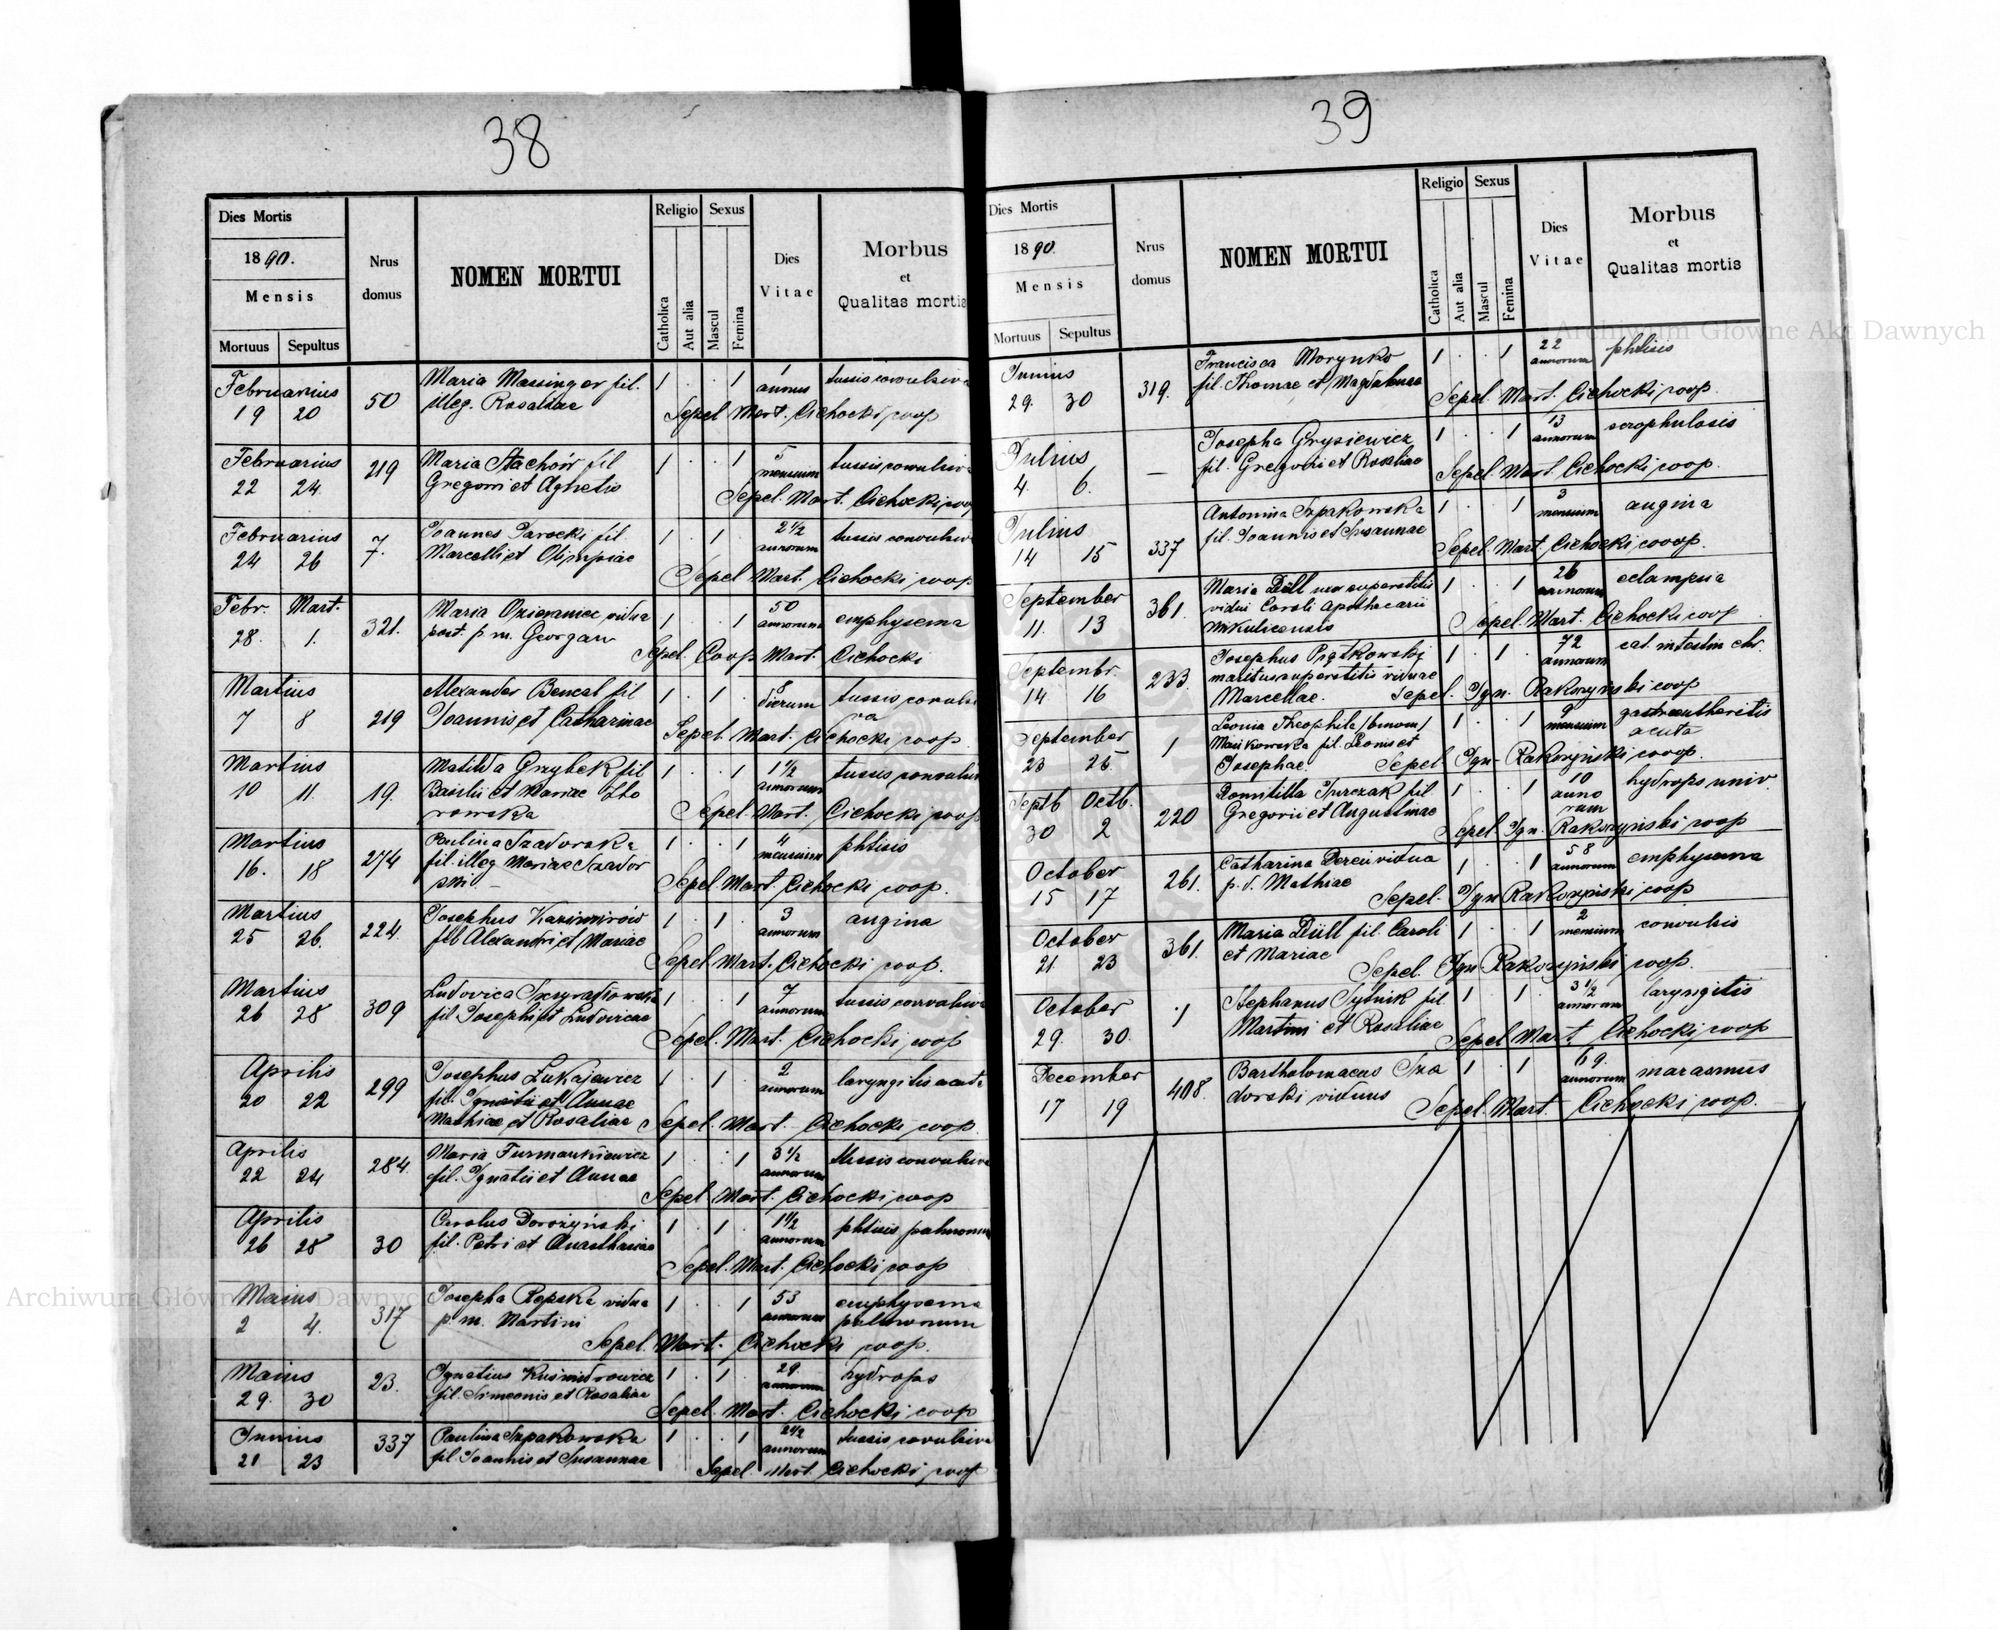 38
Dies Mortis
1890.
Mensis
Mortuus Sepultus
Nrus domus
NOMEN MORTUI
Religio
Catholica
Aut alia
Sexus
Mascul
Femina
Dies Vitae
Morbus
et
Qualitas mortis
Februarius 50 Maria Massinger fil. 1 . . 1 1 annus tussis convulsiva
19 20 illeg. Rosaliae
Sepel. Mart. Cichocki coop
Februarius 219 Maria Stachów fil 1 . . 1 5 mensium tussis convulsiva
22 24 Gregorii et Agnetis
Sepel. Mart. Cichocki coop
Februarius 7. Joannes Jarocki fil. 1 . 1 2 1/2 annorum tussis convulsiv
24 26 Marcelli et Olimpiae
Sepel Mart. Cichocki coop
Febr. Mart. 321. Maria vidua 1 . . 1 50 annorum emphysema
28. 1. post. p. m.
Sepel. Coop Mart. Cichocki
Martius 219 Alexander Bencal fil 1 . 1 8 dierum tussis convulsi
7 8 Joannis et Catharinae va
Sepel. Mart. Cichocki coop
Martius 19. Matilda Grzybek fil 1 . . 1 1 1/2 annorum tussis convulsiv
10 11. Basilii et Mariae
rowska
Sepel. Mart. Cichocki coop
Martius 274 Paulina Szadorska 1 . . 1 mensium phtisis
16. 18 fil. illeg Mariae Szador
ski
Sepel. Mart. Cichocki coop.
Martius 224. Josephus Kazimirów 1 . 1 3 annorum angina
25 26. fil Alexandri et Mariae
Sepel. Mart. Cichocki coop.
Martius 309 Ludovica 1 . . 1 7 annorum tussis convulsiva
26 28 fil. Josephi et Ludovicae
Sepel. Mart. Cichocki coop
Aprilis 299 Josephus Łukajewicz 1 . 1 2 annorum laryngitis acuta
20 22 fil. Ignatii et Annae
Mathiae et Rosaliae
Sepel. Mart. Cichocki coop.
Aprilis 284. Maria Furmankiewicz 1 . . 1 3 1/2 annorum tussis convulsiva
22 24 fil. Ignatii et Annae
Sepel. Mart. Cichocki coop
Aprilis 30 Carolus Dorożyński 1 . 1 . 1 1/2 annorum phtisis pulmonum
26 28 fil. Petri et Anasthasiae
Sepel. Mart. Cichocki coop
Maius 317 Josepha Repska vidua 1 . . 1 53 annorum emphysema
2 4. p. m. Martini pulmonum
Sepel. Mart. Cichocki coop.
Maius 23. Ignatius Kusmidrowicz 1 . 1 . 29 annorum hydrops
29. 30 fil. Simeonis et Rosaliae
Sepel. Mart. Cichocki coop
Junius 337 Paulina Szpakowska 1 . . 1 2 1/2 annorum tussis convulsiva
21 23 fil. Joannis et Susannae
Sepel Mart. Cichocki coop
39
Dies Mortis
1890.
Mensis
Mortuus Sepultus
Nrus domus
NOMEN MORTUI
Religio
Catholica
Aut alia
Sexus
Mascul
Femina
Dies Vitae
Morbus
et
Qualitas mortis
Junius 319. Francisca Morynko 1 . . 1 22 annorum phtisis
29. 30 fil. Thomae et Magdalenae
Sepel. Mart. Cichocki coop.
Julius — Josepha Grysiewicz 1 . . 1 13 annorum scrophulosis
4. 6. fil. Gregorii et Rosaliae
Sepel. Mart. Cichocki coop.
Julius 337 Antonina Szpakowska 1 . . 1 3 mensium angina
14 15 fil. Joannis et Susannae
Sepel. Mart. Cichocki cooop.
September 361. Maria Düll uxor superstitis 1 . . 1 26 annorum eclampsia
11. 13 vidui Caroli apothecarii
Mikulicensis
Sepel. Mart. Cichocki coop
Septembr. 233. Josephus Piątkowski 1 . 1 . 72 annorum cat. intestin chr.
14 16 maritus superstitis viduae
Marcellae. Sepel. Ign. Rakoszyński coop
September 1 Leonia Theophila /binom/ 1 . . 1 9 mensium gastroentheritis
23 25 Mańkowska fil. Leonis et acuta
Josephae. Sepel Ign. Rakoszyński cooop.
Septb. Octb. 220 Domitilla Jurczak fil 1 . . 1 10 anno rum hydrops univ.
30 2 Gregorii et Augustinae
Sepel Ign. Rakoszyński coop
October 261. Catharina Dereń vidua 1 . . 1 58 annorum emphysema
15 17 p. d. Mathiae
Sepel. Ign Rakoszyński coop
October 361. Maria Düll fil. Caroli 1 . . 1 2 mensium convulsis
21. 23 et Mariae
Sepel. Ign Rakoszyński coop.
October 1 Stephanus Sytnik fil. 1 . 1 . 3 1/2 annorum laryngitis
29. 30. Martini et Rosaliae
Sepel Mart Cichocki coop
December 408. Bartholomaeus Sza 1 . 1 69. annorum marasmus
17 19 dorski viduus
Sepel. Mart. Cichocki coop.
Archiwum Główne Akt Dawnych
Archiwum Główne Akt Dawnych